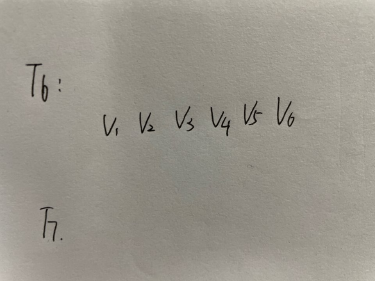 T6:
V1 V2 V3 V4 V5 V6
T7.